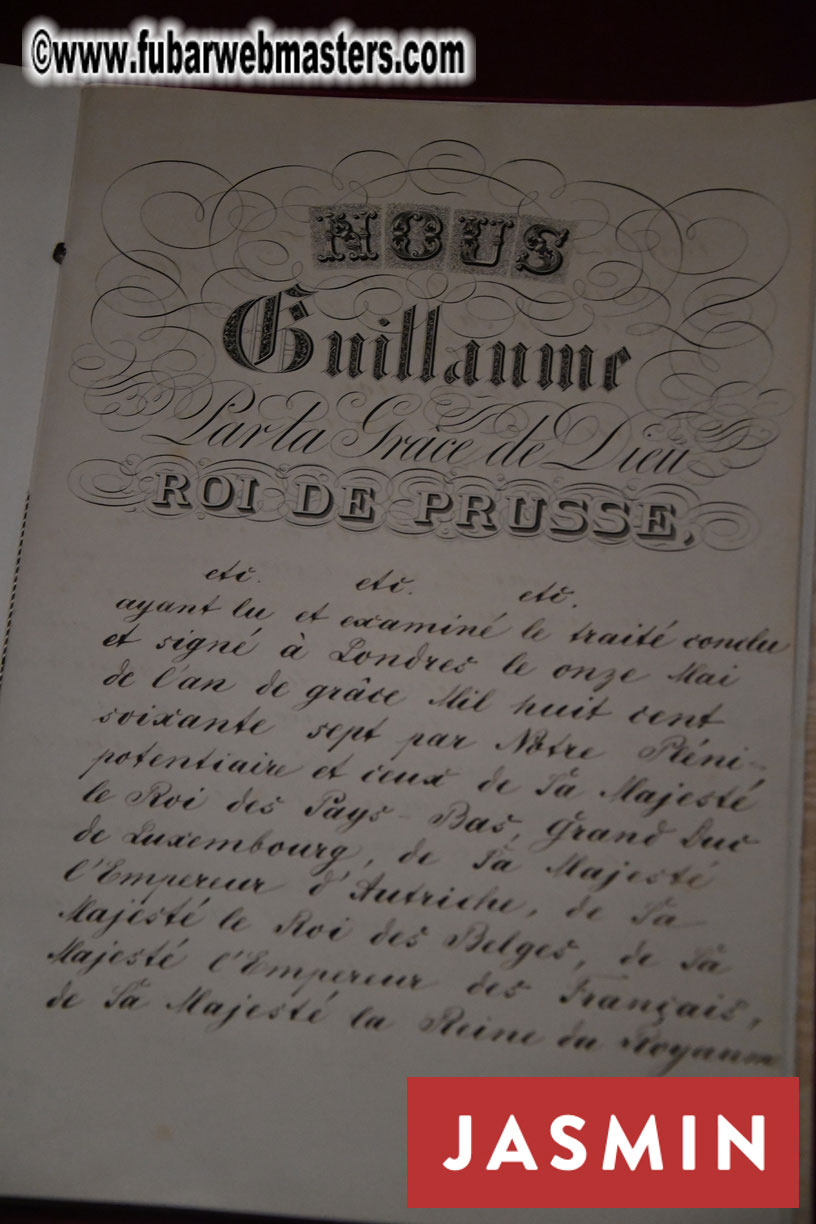 ©www.fubarwebmasters.com
NOUS
Guillaume
Par la Grâce de Dieu
ROI DE PRUSSE,
etc. etc. etc.
ayant lu et examiné le traité conclu
et signé à Londres le onze Mai
de l'an de grâce Mil huit cent
soixante sept par Notre Pléni-
potentiaire et ceux de Sa Majesté
le Roi des Pays-Bas, Grand Duc
de Luxembourg, de Sa Majesté
l'Empereur d'Autriche, de Sa
Majesté le Roi des Belges, de Sa
Majesté l'Empereur des Français,
de Sa Majesté la Reine du Royaume
JASMIN